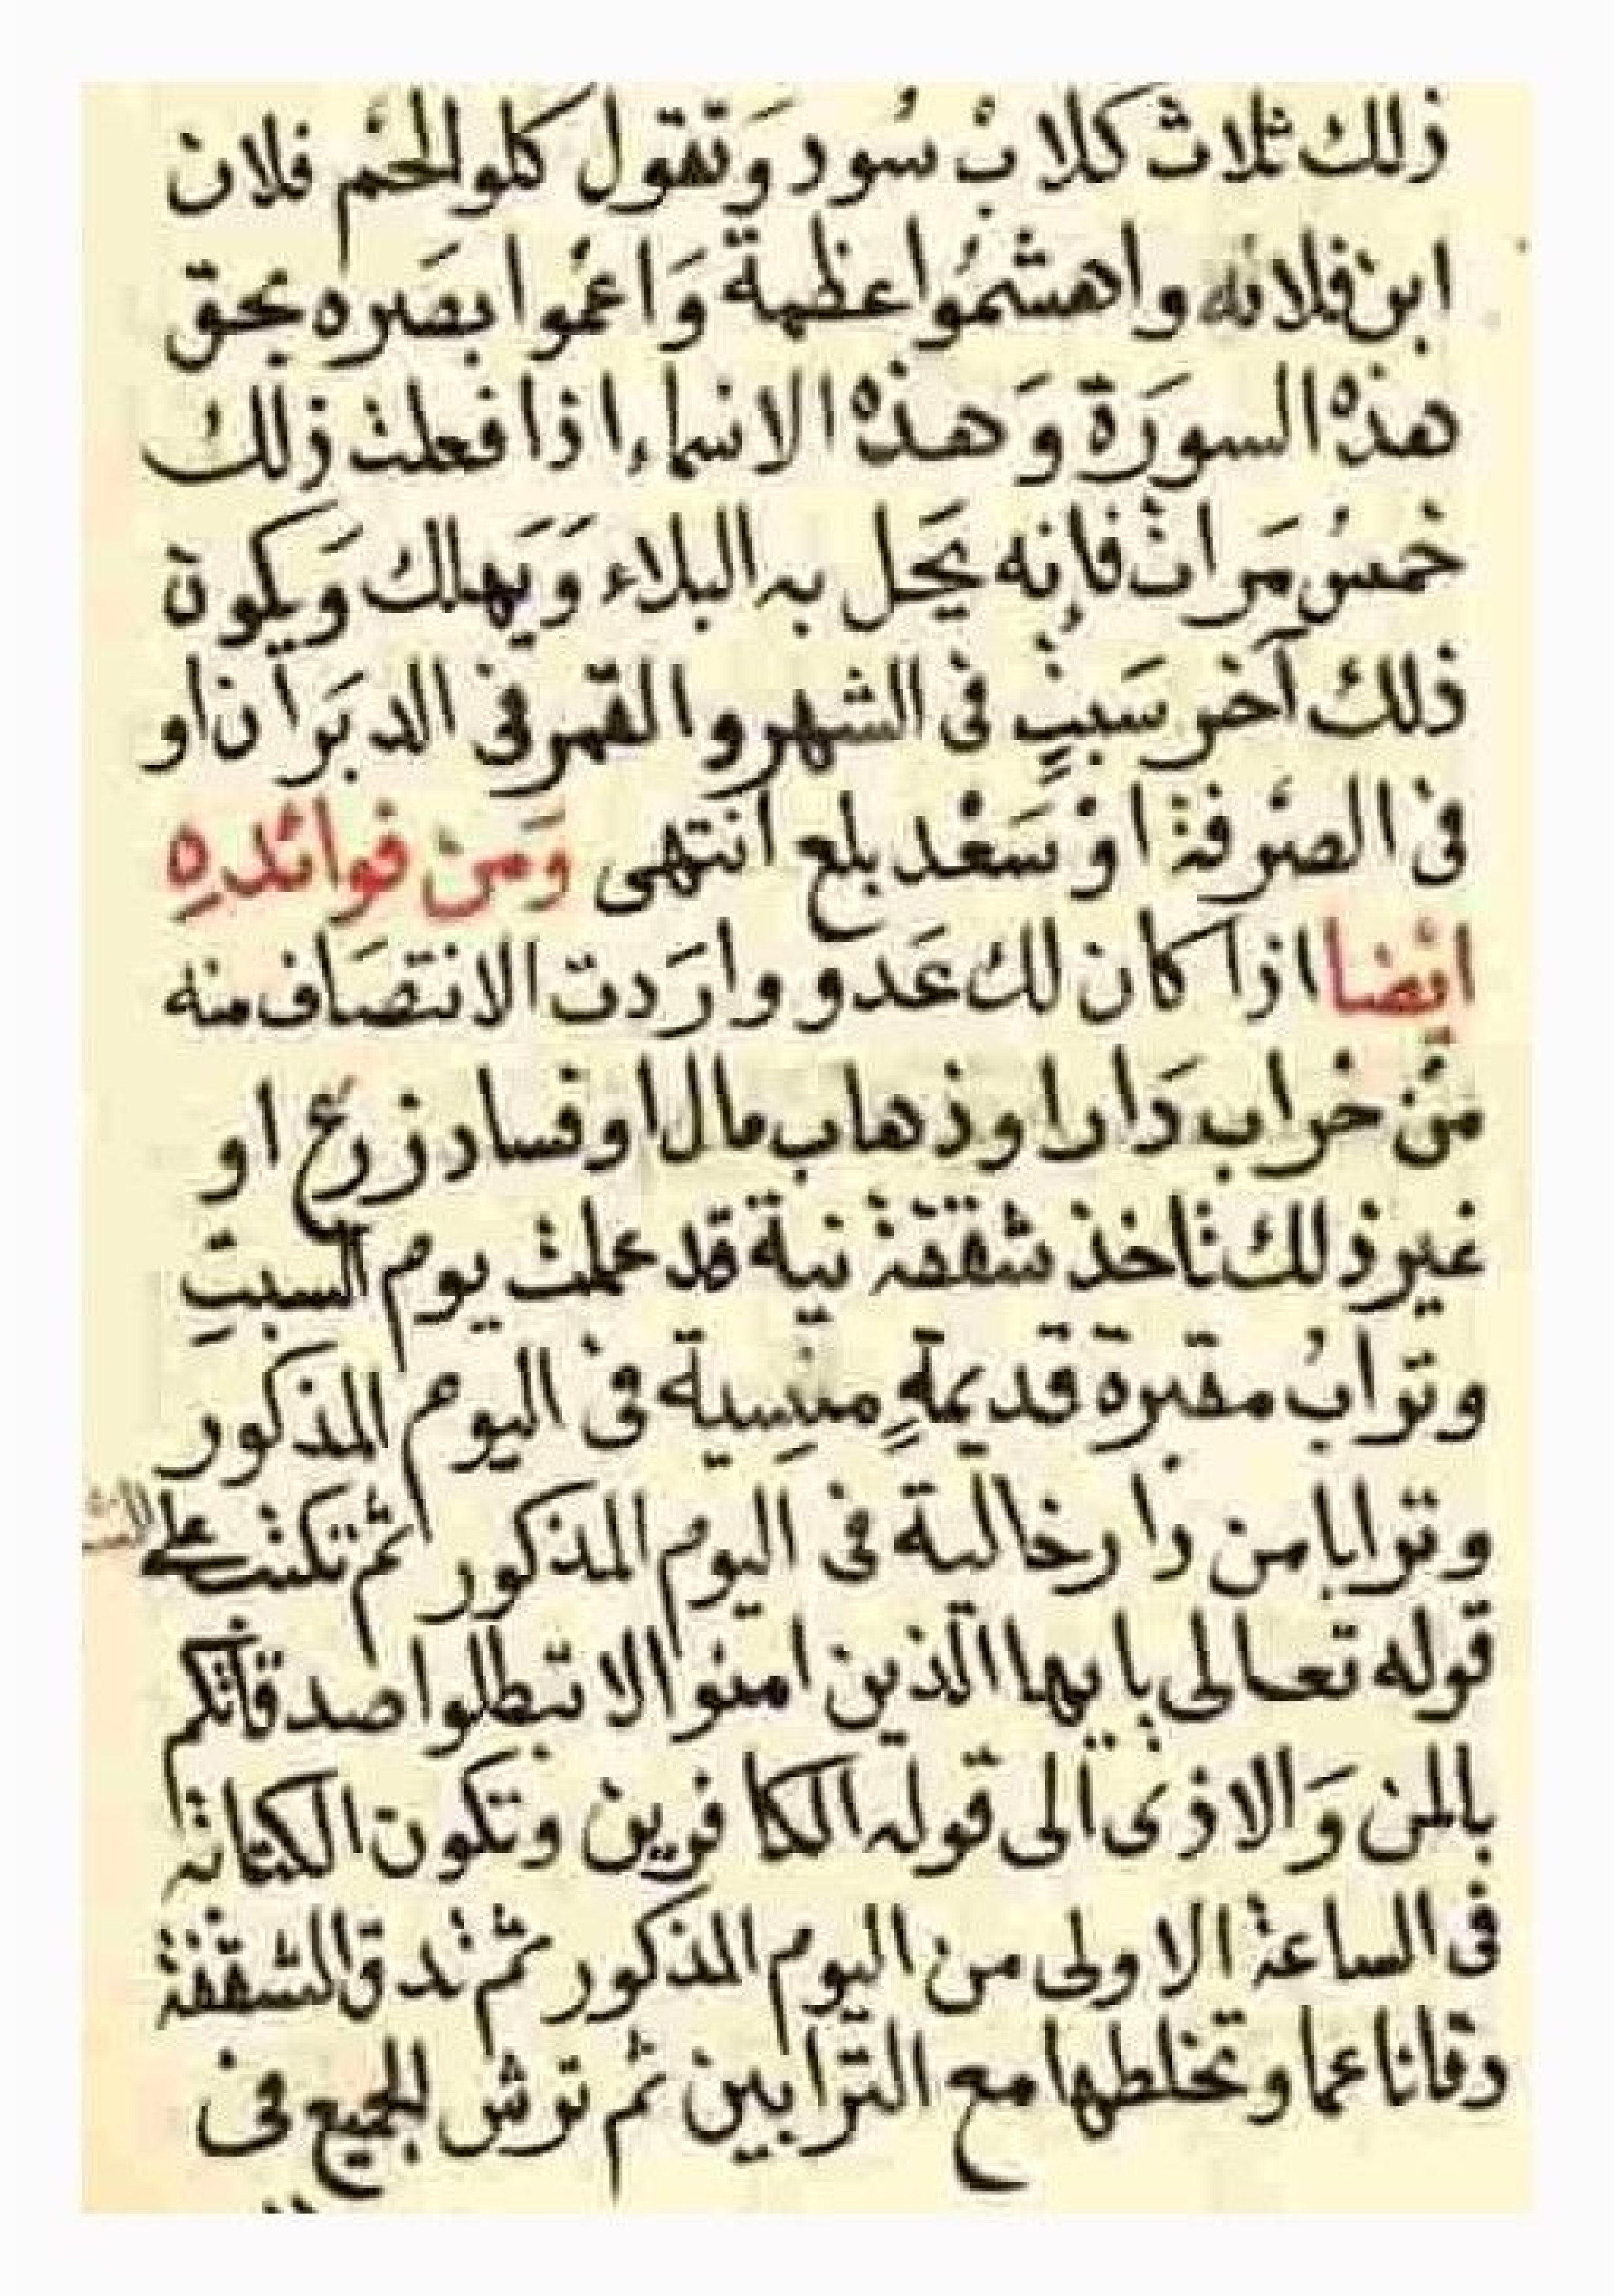 ذلك ثلاث كلاب سُود وَتقول كلو لحم فلان
ابن فلانه واهشمُوا عظمة وَاعمُوا بصَره بحق
هذه السورَة وَهذه الاسماء اذا فعلت ذلك
خمسُ مَرات فإنه يَحل به البلاء وَيَهلك وَيكون
ذلك آخر سَبتٍ فى الشهر والقمر فى الدبَران او
فى الصَرفة اوْ سَعْد بلع انتهى وَمن فوائدِه
ايضا اذا كان لك عَدو وارَدت الانتصَاف منه
مَن خراب دَار او ذهاب مال او فساد زرع او
غير ذلك تاخذ شقفة نية قد عملت يوم السبتِ
وترابُ مقبرة قديمةٍ منسِية فى اليوم المذكور
وترابا من دار خالية فى اليوم المذكور ثم تكتب على
قوله تعالى يا يها الذين امنوا لا تبطلوا صدقاتكم
بالمن وَالاذى الى قوله الكافرين وتكون الكتابة
فى الساعة الاولى من اليوم المذكور ثم تدق الشقفة
دقا ناعما وتخلطها مع الترابين ثم ترش الجميع فى